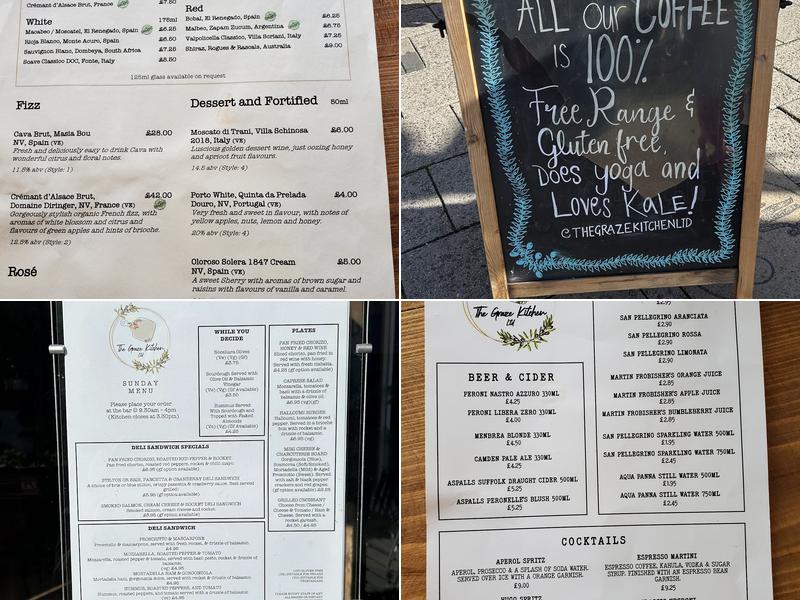 Crémant d'Alsace Brut, France
£7.50
White
175ml
Macabeo / Moscatel, El Renegado, Spain £6.25
Rioja Blanco, Monte Acuro, Spain £6.50
Sauvignon Blanc, Dombeya, South Africa £7.25
Soave Classico DOC, Fonte, Italy £8.50
Red
Bobal, El Renegado, Spain £6.25
Malbec, Zapam Zucum, Argentina £6.75
Valpolicella Classico, Villa Soriani, Italy £7.25
Shiraz, Rogues & Rascals, Australia £9.00
125ml glass available on request
Fizz
Cava Brut, Masia Bou £28.00
NV, Spain (VE)
Fresh and deliciously easy to drink Cava with
wonderful citrus and floral notes.
11.5% abv (Style: 1)
Crémant d'Alsace Brut, £42.00
Domaine Diringer, NV, France (VE)
Gorgeously stylish organic French fizz, with
aromas of white blossom and citrus and
flavours of green apples and hints of brioche.
12.5% abv (Style: 2)
Rosé
Dessert and Fortified 50ml
Moscato di Trani, Villa Schinosa £6.00
2018, Italy (VE)
Luscious golden dessert wine, just oozing honey
and apricot fruit flavours.
14.5 abv (Style: 4)
Porto White, Quinta da Prelada £4.00
Douro, NV, Portugal (VE)
Very fresh and sweet in flavour, with notes of
yellow apples, nuts, lemon and honey.
20% abv (Style: 4)
Oloroso Solera 1847 Cream £5.00
NV, Spain (VE)
A sweet Sherry with aromas of brown sugar and
raisins with flavours of vanilla and caramel.
ALL our COFFEE
is 100%
Free Range &
Gluten free,
Does yoga and
Loves Kale!
@THEGRAZEKITCHENLTD
The Graze Kitchen
Ltd
SUNDAY
MENU
Please place your order
at the bar @ 9.30am - 4pm
(Kitchen closes at 3.30pm)
WHILE YOU
DECIDE
Nocellara Olives
(Ve) (Vg) (Gf)
£3.75
Sourdough Served with
Olive Oil & Balsamic
Vinegar
(Ve) (Vg) (Gf Available)
£3.50
Hummus Served
With Sourdough and
Topped with Flaked
Almonds
(Ve) (Vg) (Gf Available)
£4.25
PLATES
PAN FRIED CHORIZO,
HONEY & RED WINE
Sliced chorizo, pan fried in
red wine with honey.
£4.25 (gf option available)
CAPRESE SALAD
Mozzarella, tomatoes &
basil with a drizzle of
balsamic & olive oil.
£6.95 (vg)(gf)
HALLOUMI BURGER
Halloumi, tomatoes & red
pepper. Served in a brioche
bun with rocket and a
drizzle of balsamic.
£6.95 (vg)
MINI CHEESE &
CHARCUTERIE BOARD
GRILLED CROISSANT
Choose from Cheese /
Cheese & Tomato / Ham &
Cheese. Served with a
rocket garnish.
£4.50 / £4.95
DELI SANDWICH SPECIALS
PAN FRIED CHORIZO, ROASTED RED PEPPER & ROCKET
Pan fried chorizo, roasted red peppers, rocket & chilli mayo.
£6.95 (gf option available)
STILTON OR BRIE, PANCETTA & CRANBERRY DELI SANDWICH
A choice of brie or blue stilton, crispy pancetta & cranberry sauce. Best served
grilled!
£5.95 (gf option available)
SMOKED SALMON, CREAM CHEESE & ROCKET DELI SANDWICH
Smoked salmon, cream cheese and rocket.
£6.95 (gf option available)
DELI SANDWICH
PROSCIUTTO & MASCARPONE
Prosciutto & mascarpone, served with fresh rocket, & drizzle of balsamic.
£4.95
MOZZARELLA, ROASTED PEPPER & TOMATO
(vg) £4.95
MORTADELLA HAM & GORGONZOLA
£4.95
HUMMUS, ROASTED PEPPERS, AND TOMATO
The Graze Kitchen
Ltd
BEER & CIDER
PERONI NASTRO AZZURO 330ML
£4.25
PERONI LIBERA ZERO 330ML
£4.00
MENBREA BLONDE 330ML
£4.50
CAMDEN PALE ALE 330ML
£4.25
ASPALLS SUFFOLK DRAUGHT CIDER 500ML
£5.25
ASPALLS PERONELLE'S BLUSH 500ML
£5.25
£2.95
SAN PELLEGRINO ARANCIATA
£2.90
SAN PELLEGRINO ROSSA
£2.90
SAN PELLEGRINO LIMONATA
£2.90
MARTIN FROBISHER'S ORANGE JUICE
£2.85
MARTIN FROBISHER'S APPLE JUICE
£2.85
MARTIN FROBISHER'S BUMBLEBERRY JUICE
£2.85
SAN PELLEGRINO SPARKLING WATER 500ML
£1.95
SAN PELLEGRINO SPARKLING WATER 750ML
£2.45
AQUA PANNA STILL WATER 500ML
£1.95
AQUA PANNA STILL WATER 750ML
£2.45
COCKTAILS
APEROL SPRITZ
APEROL, PROSECCO & A SPLASH OF SODA WATER.
SERVED OVER ICE WITH A ORANGE GARNISH.
£9.00
HUGO SPRITZ
ESPRESSO MARTINI
ESPRESSO COFFEE, KAHULA, VODKA & SUGAR
SYRUP. FINISHED WITH AN ESPRESSO BEAN
GARNISH.
£9.25